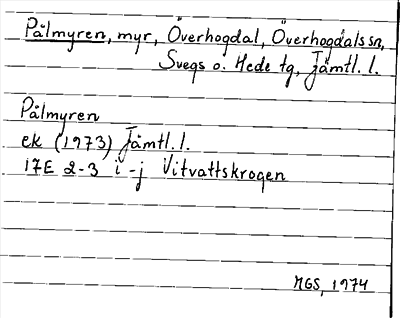 Pålmyren, myr, Överhogdal, Överhogdals sn,
Svegs o. Hede tg, Jämtl. l.
Pålmyren
ek (1973) Jämtl. l.
17E 2-3 i-j Vitvattskrogen
MGS, 1974